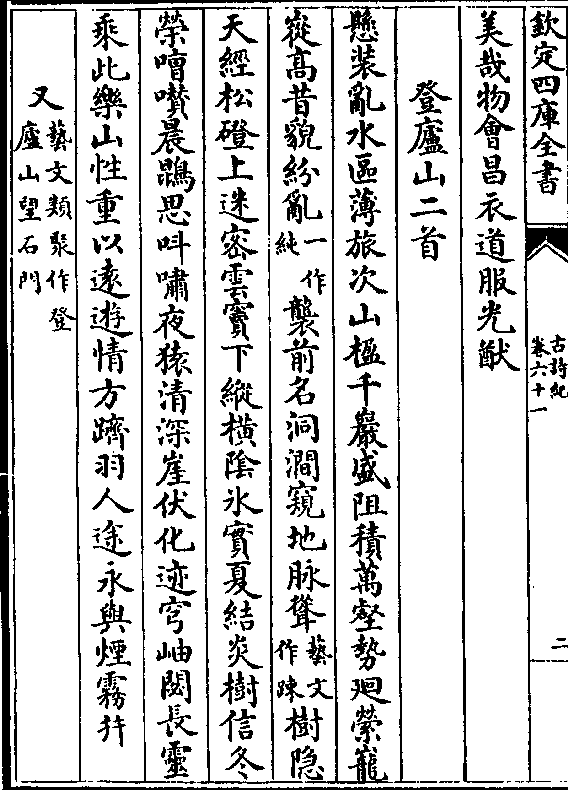 欽定四庫全書
古詩紀
卷六十一
二
美哉物會昌衣道服光猷
登廬山二首
懸装亂水區薄旅次山楹千巖盛阻積萬壑勢廻縈巃
嵸高昔貌紛亂一作純襲前名洞澗窺地脉聳藝文作踈樹隐
天經松磴上迷密雲竇下縱橫陰氷實夏結炎樹信冬
榮嘈囋晨鵾思呌嘯夜猿清深崖伏化迹穹岫閟長靈
乘此樂山性重以逺遊情方躋羽人途永與煙霧幷
又藝文類聚作登廬山望石門